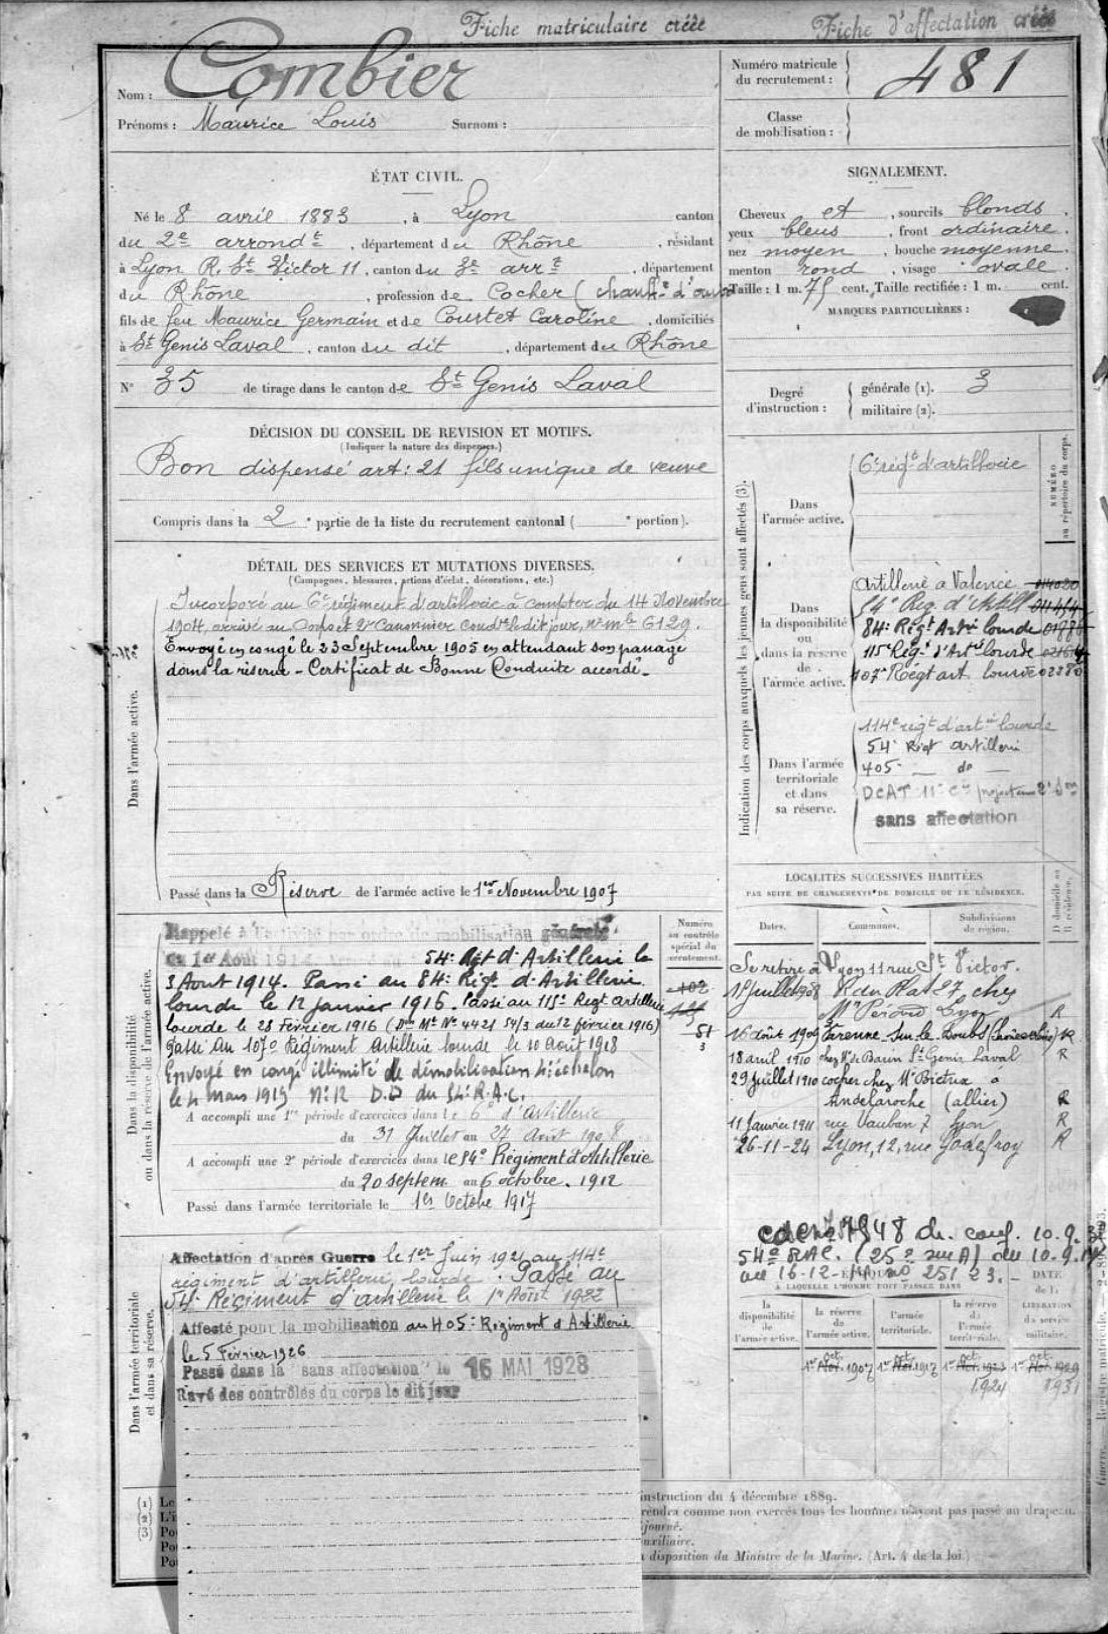 Fiche matriculaire créée
Fiche d'affectation créée
Nom : Combier
Prénoms : Maurice Louis Surnom :
Numéro matricule du recrutement : 481
Classe de mobilisation :
ÉTAT CIVIL.
Né le 8 avril 1883, à Lyon canton
du 2e arrondt, département du Rhône, résidant
à Lyon R. St Victor 11, canton du 3e arrt, département
du Rhône, profession de Cocher (
fils de feu Maurice Germain et de Courtet Caroline, domiciliés
à St Genis Laval, canton du dit, département du Rhône
N° 35 de tirage dans le canton de St Genis Laval
SIGNALEMENT.
Cheveux et, sourcils blonds.
yeux bleus, front ordinaire.
nez moyen, bouche moyenne.
menton rond, visage ovale.
Taille : 1 m. 75 cent. Taille rectifiée : 1 m. cent.
MARQUES PARTICULIÈRES :
Degré d'instruction : générale (1). 3
militaire (2).
DÉCISION DU CONSEIL DE REVISION ET MOTIFS.
(Indiquer la nature des dispenses.)
Bon dispensé art: 21 fils unique de veuve
Compris dans la 2e partie de la liste du recrutement cantonal ( e portion).
DÉTAIL DES SERVICES ET MUTATIONS DIVERSES.
(Campagnes, blessures, actions d'éclat, décorations, etc.)
Dans l'armée active.
Incorporé au 6e régiment d'artillerie à compter du 14 Novembre
1904, arrivé au Corps et 2e Canonnier Condr le dit jour, n° mle 6129.
Envoyé en congé le 23 Septembre 1905 en attendant son passage
dans la réserve - Certificat de Bonne Conduite accordé.
Passé dans la Réserve de l'armée active le 1er Novembre 1907
Indication des corps auxquels les jeunes gens sont affectés (3).
NUMÉRO au répertoire du corps.
Dans l'armée active.
6e régt d'artillerie
Dans la disponibilité ou dans la réserve de l'armée active.
Artillerie à Valence
54e Reg. d'Artill
84e Régt Artie lourde
115e Régt d'Artie lourde
107e Régt art. lourde
Dans l'armée territoriale et dans sa réserve.
114e régt d'artie lourde
54e Régt artillerie
405e — do —
DCAT 11e Cie
sans affectation
Dans la disponibilité ou dans la réserve de l'armée active.
Rappelé à l'activité par ordre de mobilisation générale
du 1er Août 1914. 54e Rgt d'Artillerie le
3 Aout 1914. Passé au 84e Régt d'Artillerie
lourde le 12 janvier 1916. Passé au 115e Regt Artillerie
lourde le 28 Février 1916 (Don Mle N° 4421 54/3 du 12 février 1916)
Passé au 107e Régiment Artillerie lourde le 10 Août 1918
Envoyé en congé illimité de démobilisation 4e échelon
le 4 Mars 1919 N° 12 D.D du 54e R.A.C.
A accompli une 1re période d'exercices dans le 6e d'artillerie
du 31 Juillet au 27 Août 1908
A accompli une 2e période d'exercices dans le 54e Régiment d'Artillerie
du 20 septem au 6 octobre. 1912
Passé dans l'armée territoriale le 1er Octobre 1917
Numéro au contrôle spécial du recrutement.
LOCALITÉS SUCCESSIVES HABITÉES
PAR SUITE DE CHANGEMENTS DE DOMICILE OU DE RÉSIDENCE.
Dates. Communes. Subdivisions de région. D domicile ou R résidence.
Se retire à Lyon 11 rue St Victor.
R du Plat 27 chez
Lyon R
16 août 1909 R
18 avril 1910 chez Mr de Barin St Genis Laval R
29 Juillet 1910 cocher chez Mr à
Andelaroche (allier) R
11 Janvier 1911 rue Vauban 7 Lyon R
26-11-24 Lyon, 12, rue Godefroy R
Dans l'armée territoriale et dans sa réserve.
Affectation d'après Guerre le 1er Juin 1921 au 114e
régiment d'artillerie lourde. Passé au
54e Régiment d'artillerie le 1er Août 1922
Affecté pour la mobilisation au 405e Régiment d'Artillerie
le 5 Février 1926
Passé dans la "sans affectation" le 16 MAI 1928
Rayé des contrôles du corps le dit jour
À LAQUELLE L'HOMME DOIT PASSER DANS
la disponibilité de l'armée active. la réserve de l'armée active. l'armée territoriale. la réserve de l'armée territoriale. DATE de la LIBÉRATION du service militaire.
1er oct. Nov. 1907 1er oct. Nov. 1917 1er oct. Nov. 1923 1er oct. Nov. 1929
1924 1931
(1) Le
(2) L'i
(3) Po
Po
Po
instruction du 4 décembre 1889.
rendra comme non exercés tous les hommes n'ayant pas passé au drapeau.
journé.
auxiliaire.
disposition du Ministre de la Marine. (Art. 4 de la loi.)